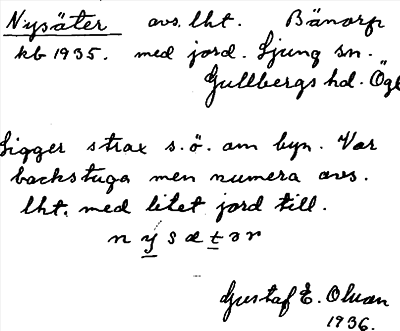 Nysäter avs. lht. Bänorp
kb 1935. med jord. Ljung sn.
Gullbergs hd. Ögl
Ligger strax s.ö. om byn. Var
backstuga men numera avs.
lht. med litet jord till.
n y s æ t ə r
Gustaf E. Olsson
1936.